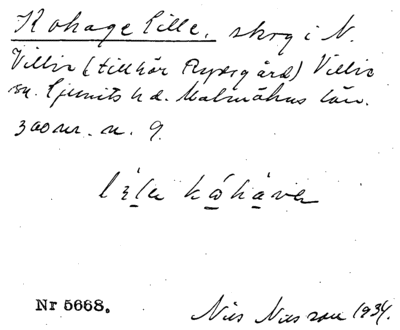 Kohage Lille, skog i N.
Villie (tillhör Rydsgård) Villie
sn. Ljunits hd. Malmöhus län.
300 m. n. 9.
kåhåven
Nr 5668. Nils Nilsson 1934.